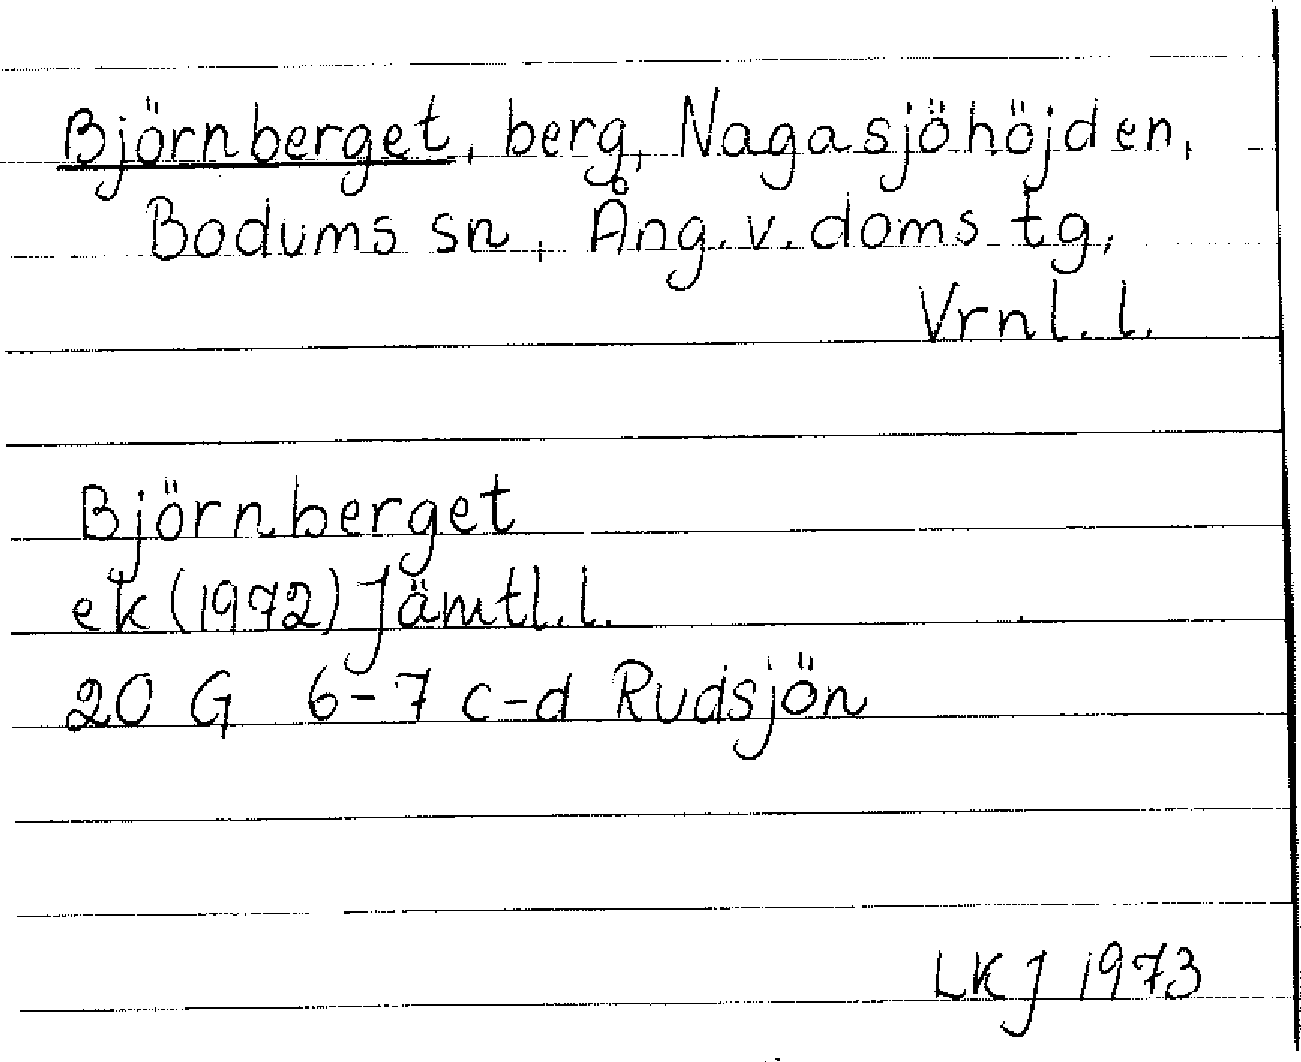 Björnberget, berg, Nagasjöhöjden,
Bodums sn, Ång. v. doms tg,
Vrnl. l.
Björnberget
ek (1972) Jämtl. l.
20 G 6-7 c-d Rudsjön
LKJ 1973